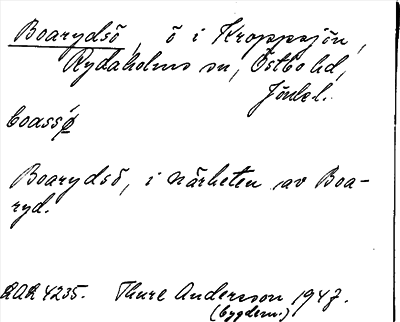 Boarydsö, ö i Kroppsjön,
Rydaholms sn, Östbo hd,
Jönk.l.
boassǿ
Boarydsö, i närheten av Boa-
ryd.
RAÄ 4235. Thure Andersson 1947.
(bygdem.)